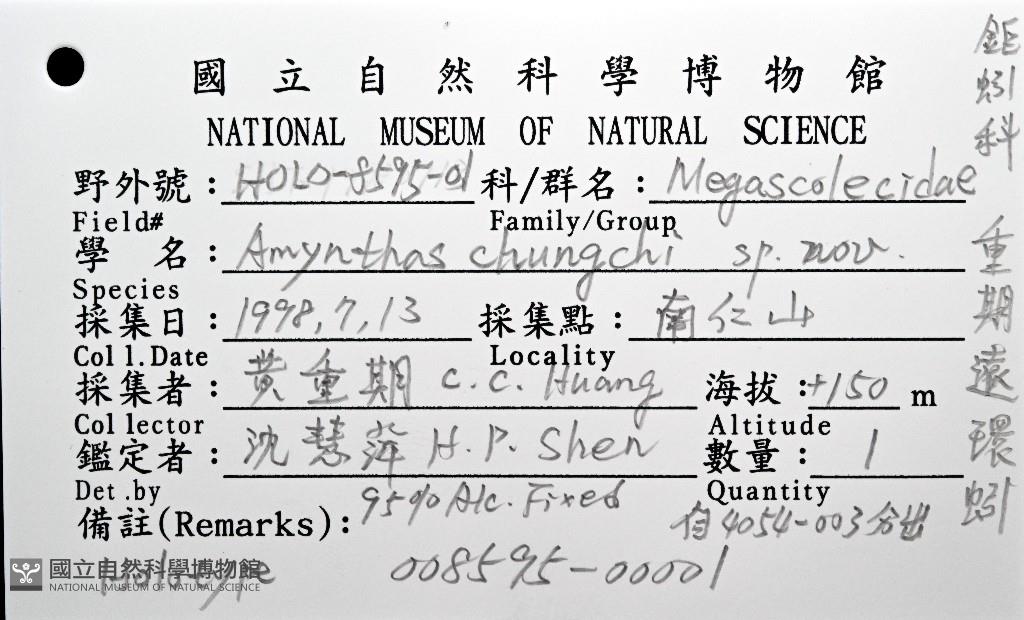 國立自然科學博物館
NATIONAL MUSEUM OF NATURAL SCIENCE
野外號：HOLO-8595-01 科/群名：Megascolecidae
Field# Family/Group
學 名：Amynthas chungchi sp. nov.
Species
採集日：1998,7,13 採集點：南仁山
Coll.Date Locality
採集者：黃重期 C.C. Huang 海拔：+150 m
Collector Altitude
鑑定者：沈慧萍 H.P. Shen 數量：1
Det.by Quantity
備註(Remarks)：95% Alc. Fixed
自4054-003分出
Holotype 008595-00001
國立自然科學博物館
NATIONAL MUSEUM OF NATURAL SCIENCE
鉅蚓科 重期遠環蚓